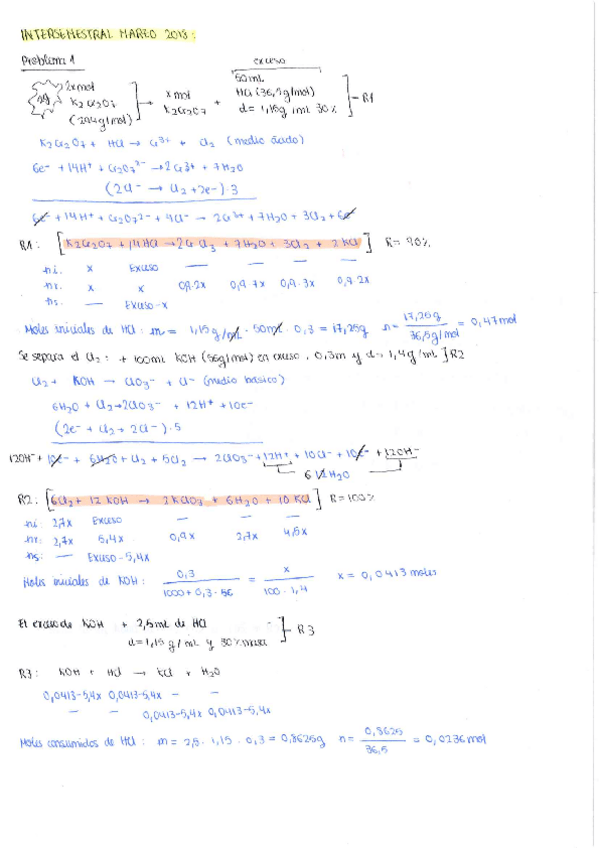 INTERSEMESTRAL MARZO 2018:
Problema 1
exceso
2g
2xmol
K2Cr2O7
(294g/mol)
x mol
K2Cr2O7
+
50mL
HCl (36,5g/mol)
d= 1,15g/mL 30%
R1
K2Cr2O7 + HCl → Cr3+ + Cl2 (medio ácido)
6e- + 14H+ + Cr2O72- → 2Cr3+ + 7H2O
(2Cl- → Cl2 + 2e-)·3
6e- + 14H+ + Cr2O72- + 6Cl- → 2Cr3+ + 7H2O + 3Cl2 + 6e-
R1: [K2Cr2O7 + 14HCl → 2CrCl3 + 7H2O + 3Cl2 + 2KCl] R= 90%
ni. x Exceso — — — —
nr. x x 0,9·2x 0,9·7x 0,9·3x 0,9·2x
ns. — Exceso-x
Moles iniciales de HCl: m = 1,15g/mL · 50mL · 0,3 = 17,25g n= 17,25g / 36,5g/mol = 0,47mol
Se separa el Cl2: + 100mL KOH (56g/mol) en exceso, 0,3m y d= 1,4g/mL ] R2
Cl2 + KOH → ClO3- + Cl- (medio básico)
6H2O + Cl2 → 2ClO3- + 12H+ + 10e-
(2e- + Cl2 → 2Cl-)·5
12OH- + 10e- + 6H2O + Cl2 + 5Cl2 → 2ClO3- + 12H+ + 10Cl- + 10e- + 12OH-
6 12H2O
R2: [6Cl2 + 12 KOH → 2KClO3 + 6H2O + 10 KCl] R=100%
ni: 2,7x Exceso — — —
nr: 2,7x 5,4x 0,9x 2,7x 4,5x
ns: — Exceso-5,4x
Moles iniciales de KOH: 0,3 / 1000+0,3·56 = x / 100·1,4 x = 0,0413 moles
El exceso de KOH + 2,5mL de HCl
d=1,15 g/mL y 30%masa
R3
R3: KOH + HCl → KCl + H2O
0,0413-5,4x 0,0413-5,4x — —
— — 0,0413-5,4x 0,0413-5,4x
Moles consumidos de HCl: m = 2,5 · 1,15 · 0,3 = 0,8625g n= 0,8625 / 36,5 = 0,0236mol